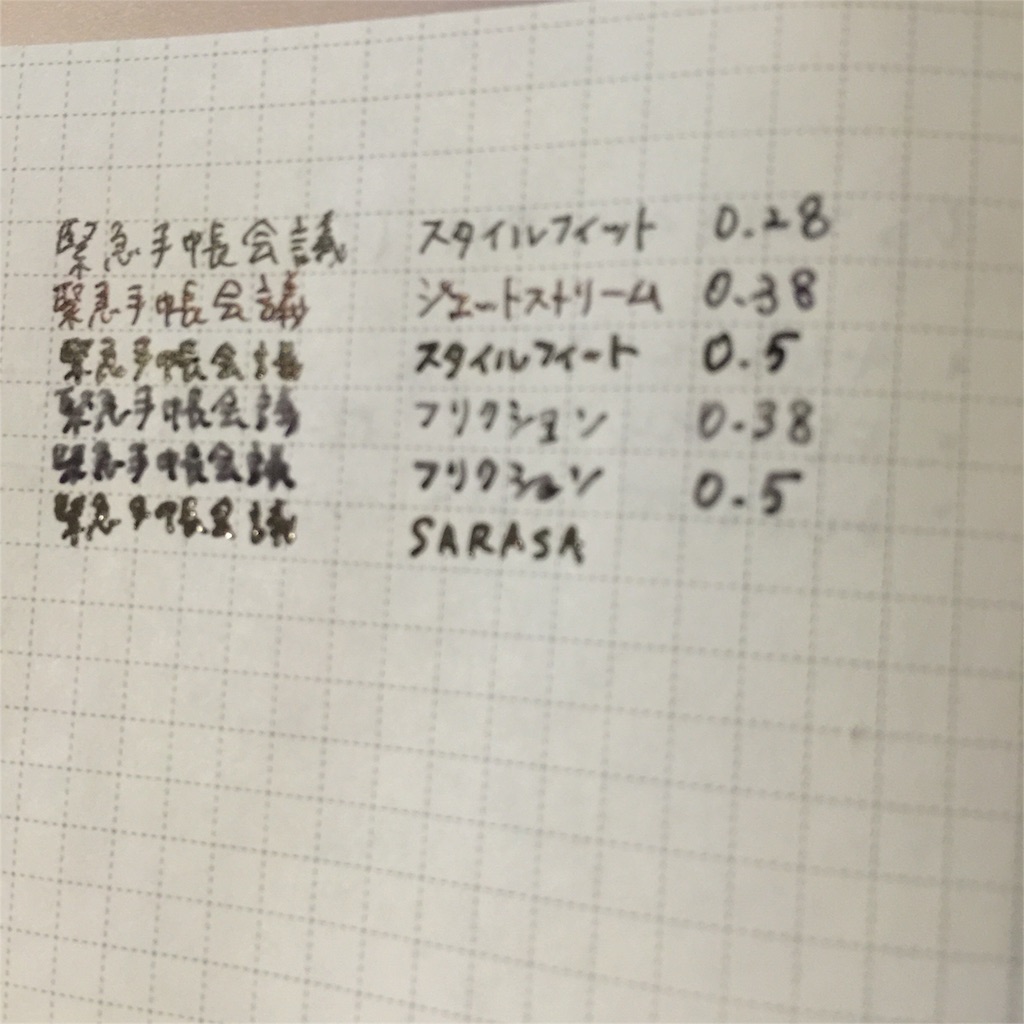 緊急手帳会議 スタイルフィット 0.28
緊急手帳会議 ジェットストリーム 0.38
緊急手帳会議 スタイルフィート 0.5
緊急手帳会議 フリクション 0.38
緊急手帳会議 フリクション 0.5
緊急手帳会議 SARASA